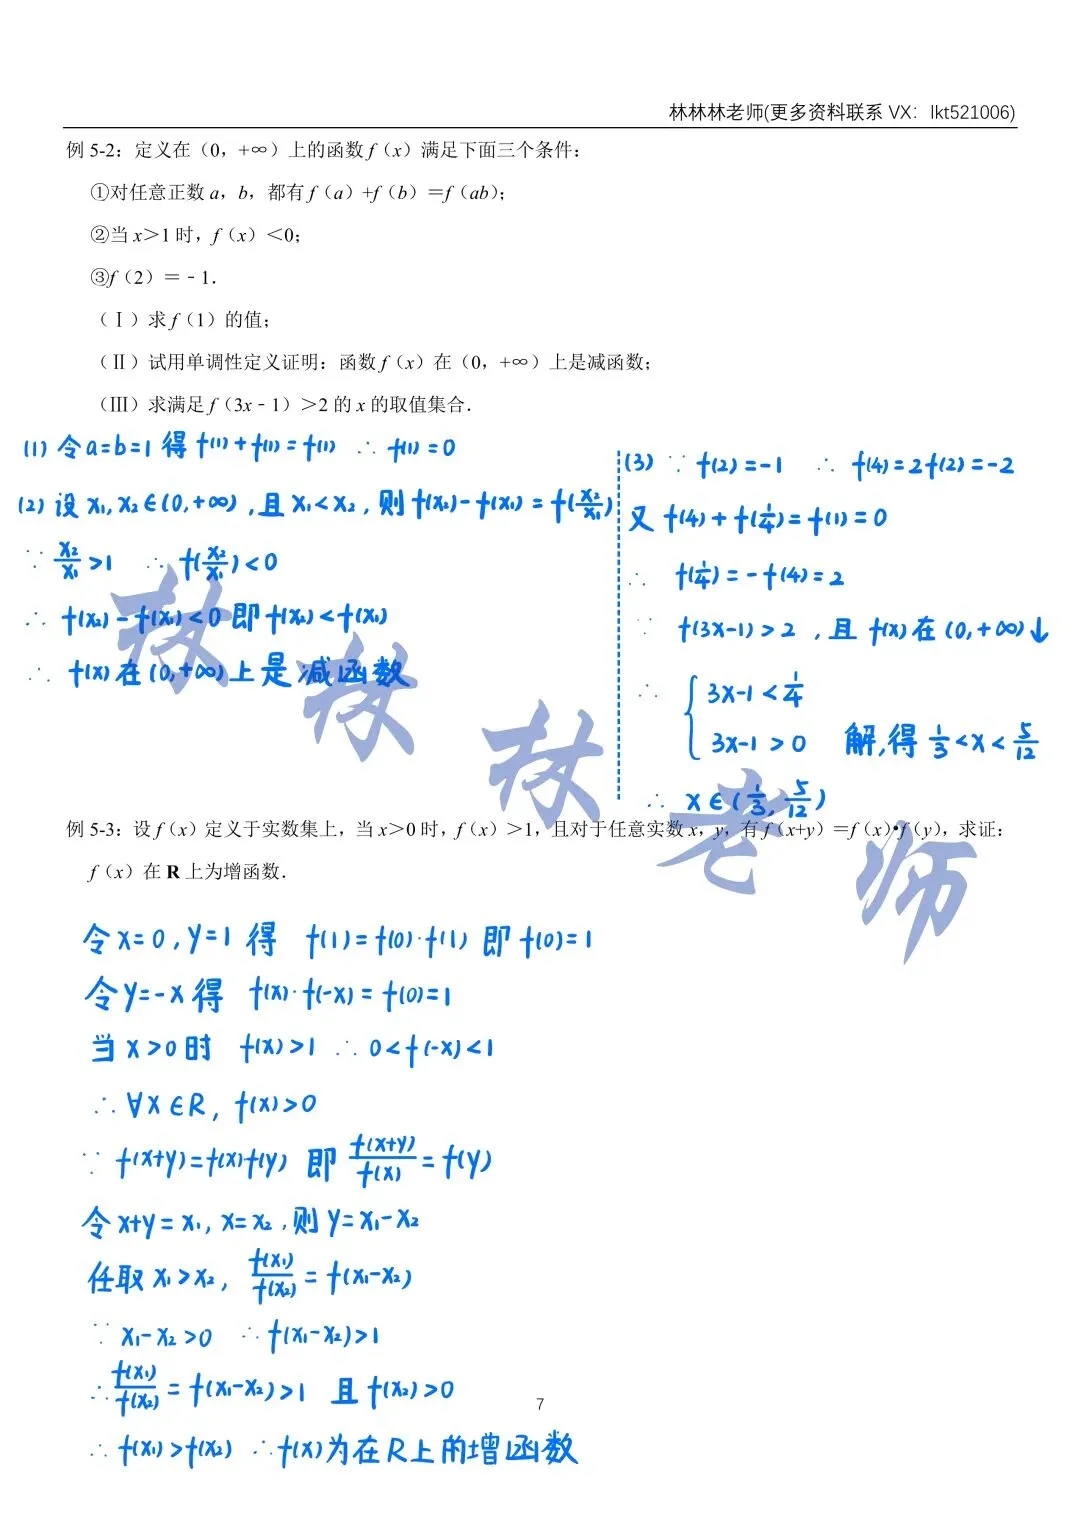 林林林老师(更多资料联系 VX：lkt521006)
例 5-2：定义在（0，+∞）上的函数 f（x）满足下面三个条件：
①对任意正数 a，b，都有 f（a）+f（b）＝f（ab）；
②当 x＞1 时，f（x）＜0；
③f（2）＝﹣1．
（Ⅰ）求 f（1）的值；
（Ⅱ）试用单调性定义证明：函数 f（x）在（0，+∞）上是减函数；
（Ⅲ）求满足 f（3x﹣1）＞2 的 x 的取值集合．
(1) 令a=b=1 得 f(1)+f(1)=f(1) ∴ f(1)=0
(2) 设 x₁,x₂∈(0,+∞),且 x₁<x₂,则 f(x₂)-f(x₁)=f(x₂/x₁)
∵ x₂/x₁>1 ∴ f(x₂/x₁)<0
∴ f(x₂)-f(x₁)<0 即 f(x₂)<f(x₁)
∴ f(x)在(0,+∞)上是减函数
(3) ∵ f(2)=-1 ∴ f(4)=2f(2)=-2
又 f(4)+f(1/4)=f(1)=0
∴ f(1/4)=-f(4)=2
∵ f(3x-1)>2 ,且 f(x)在(0,+∞)↓
∴ { 3x-1<1/4
3x-1>0 解,得 1/3<x<5/12
∴ x∈(1/3,5/12)
林林林老师
例 5-3：设 f（x）定义于实数集上，当 x＞0 时，f（x）＞1，且对于任意实数 x，y，有 f（x+y）＝f（x）•f（y），求证：
f（x）在 R 上为增函数．
令 x=0,y=1 得 f(1)=f(0)·f(1) 即 f(0)=1
令 y=-x 得 f(x)·f(-x)=f(0)=1
当 x>0 时 f(x)>1 ∴ 0<f(-x)<1
∴ ∀x∈R, f(x)>0
∵ f(x+y)=f(x)·f(y) 即 f(x+y)/f(x)=f(y)
令 x+y=x₁, x=x₂,则 y=x₁-x₂
任取 x₁>x₂, f(x₁)/f(x₂)=f(x₁-x₂)
∵ x₁-x₂>0 ∴ f(x₁-x₂)>1
∴ f(x₁)/f(x₂)=f(x₁-x₂)>1 且 f(x₂)>0
7
∴ f(x₁)>f(x₂) ∴ f(x)为在R上的增函数